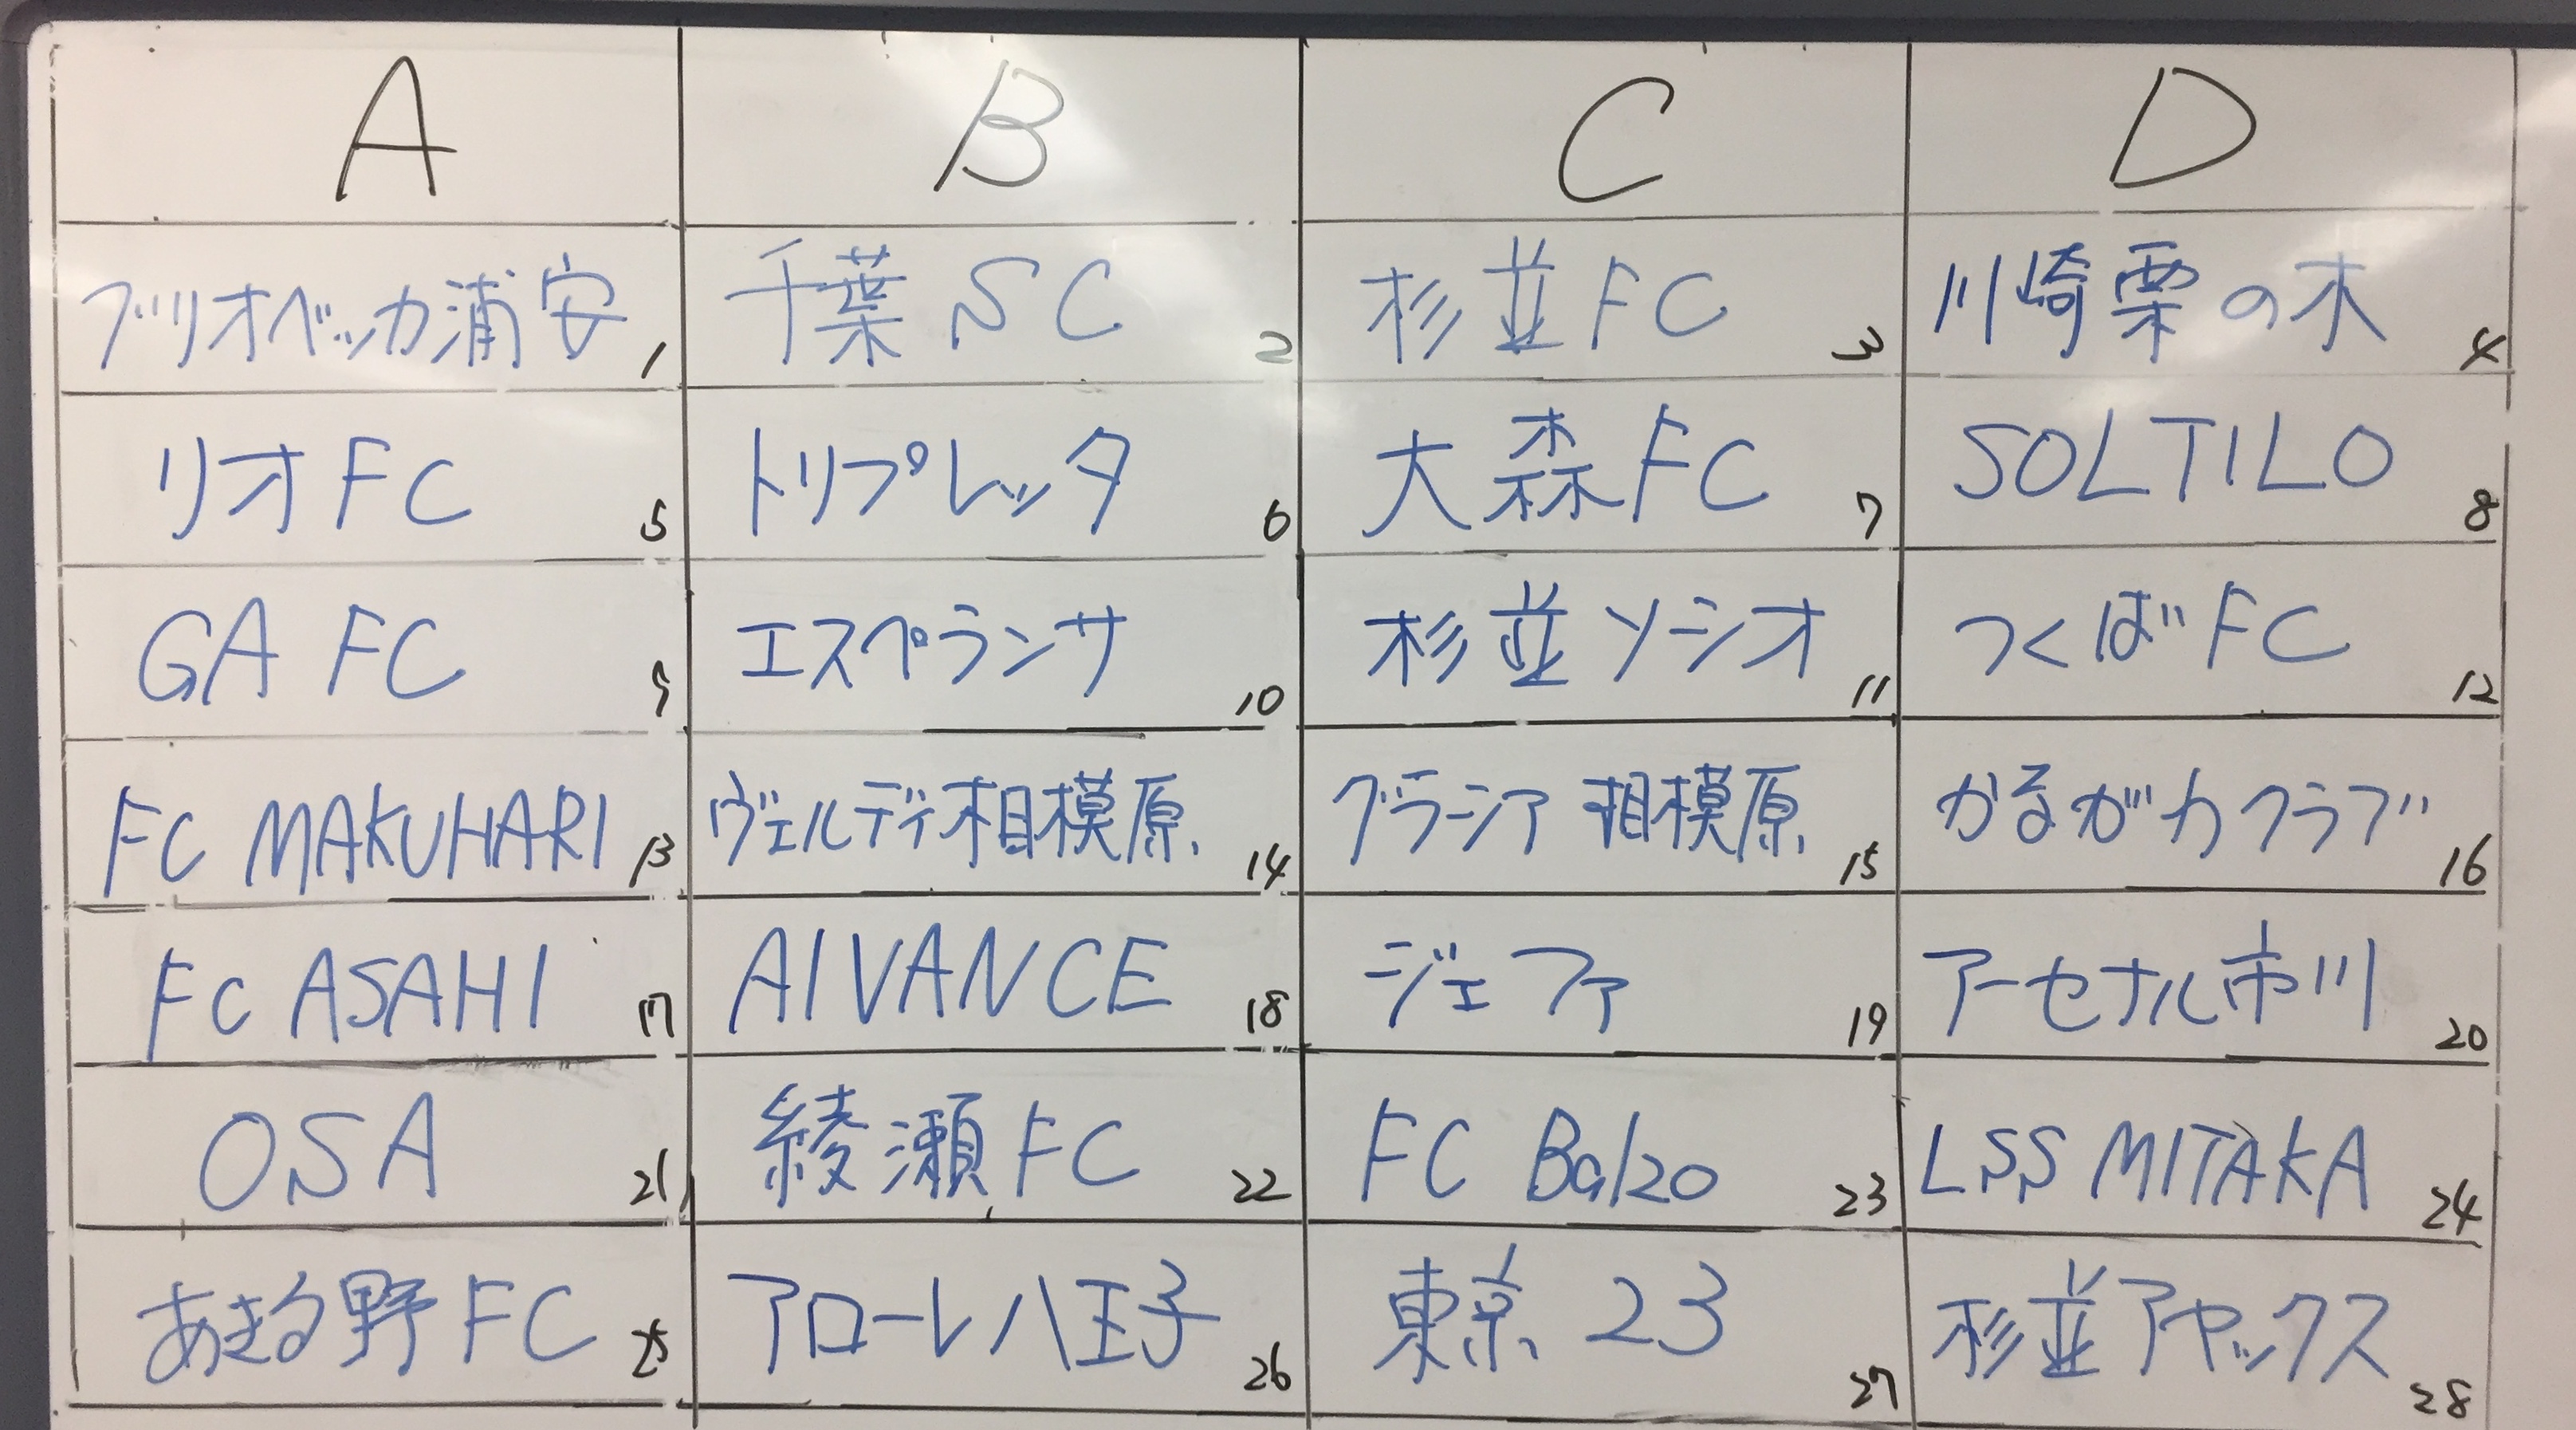 A B C D
ブリオベッカ浦安 1 千葉SC 2 杉並FC 3 川崎栗の木 4
リオFC 5 トリプレッタ 6 大森FC 7 SOLTILO 8
GA FC 9 エスペランサ 10 杉並ソシオ 11 つくばFC 12
FC MAKUHARI 13 ヴェルディ相模原 14 グラシア相模原 15 かるがカクラブ 16
FC ASAHI 17 AIVANCE 18 ジェファ 19 アーセナル市川 20
OSA 21 綾瀬FC 22 FC Balzo 23 LSS MITAKA 24
あきる野FC 25 アローレ八王子 26 東京23 27 杉並アヤックス 28